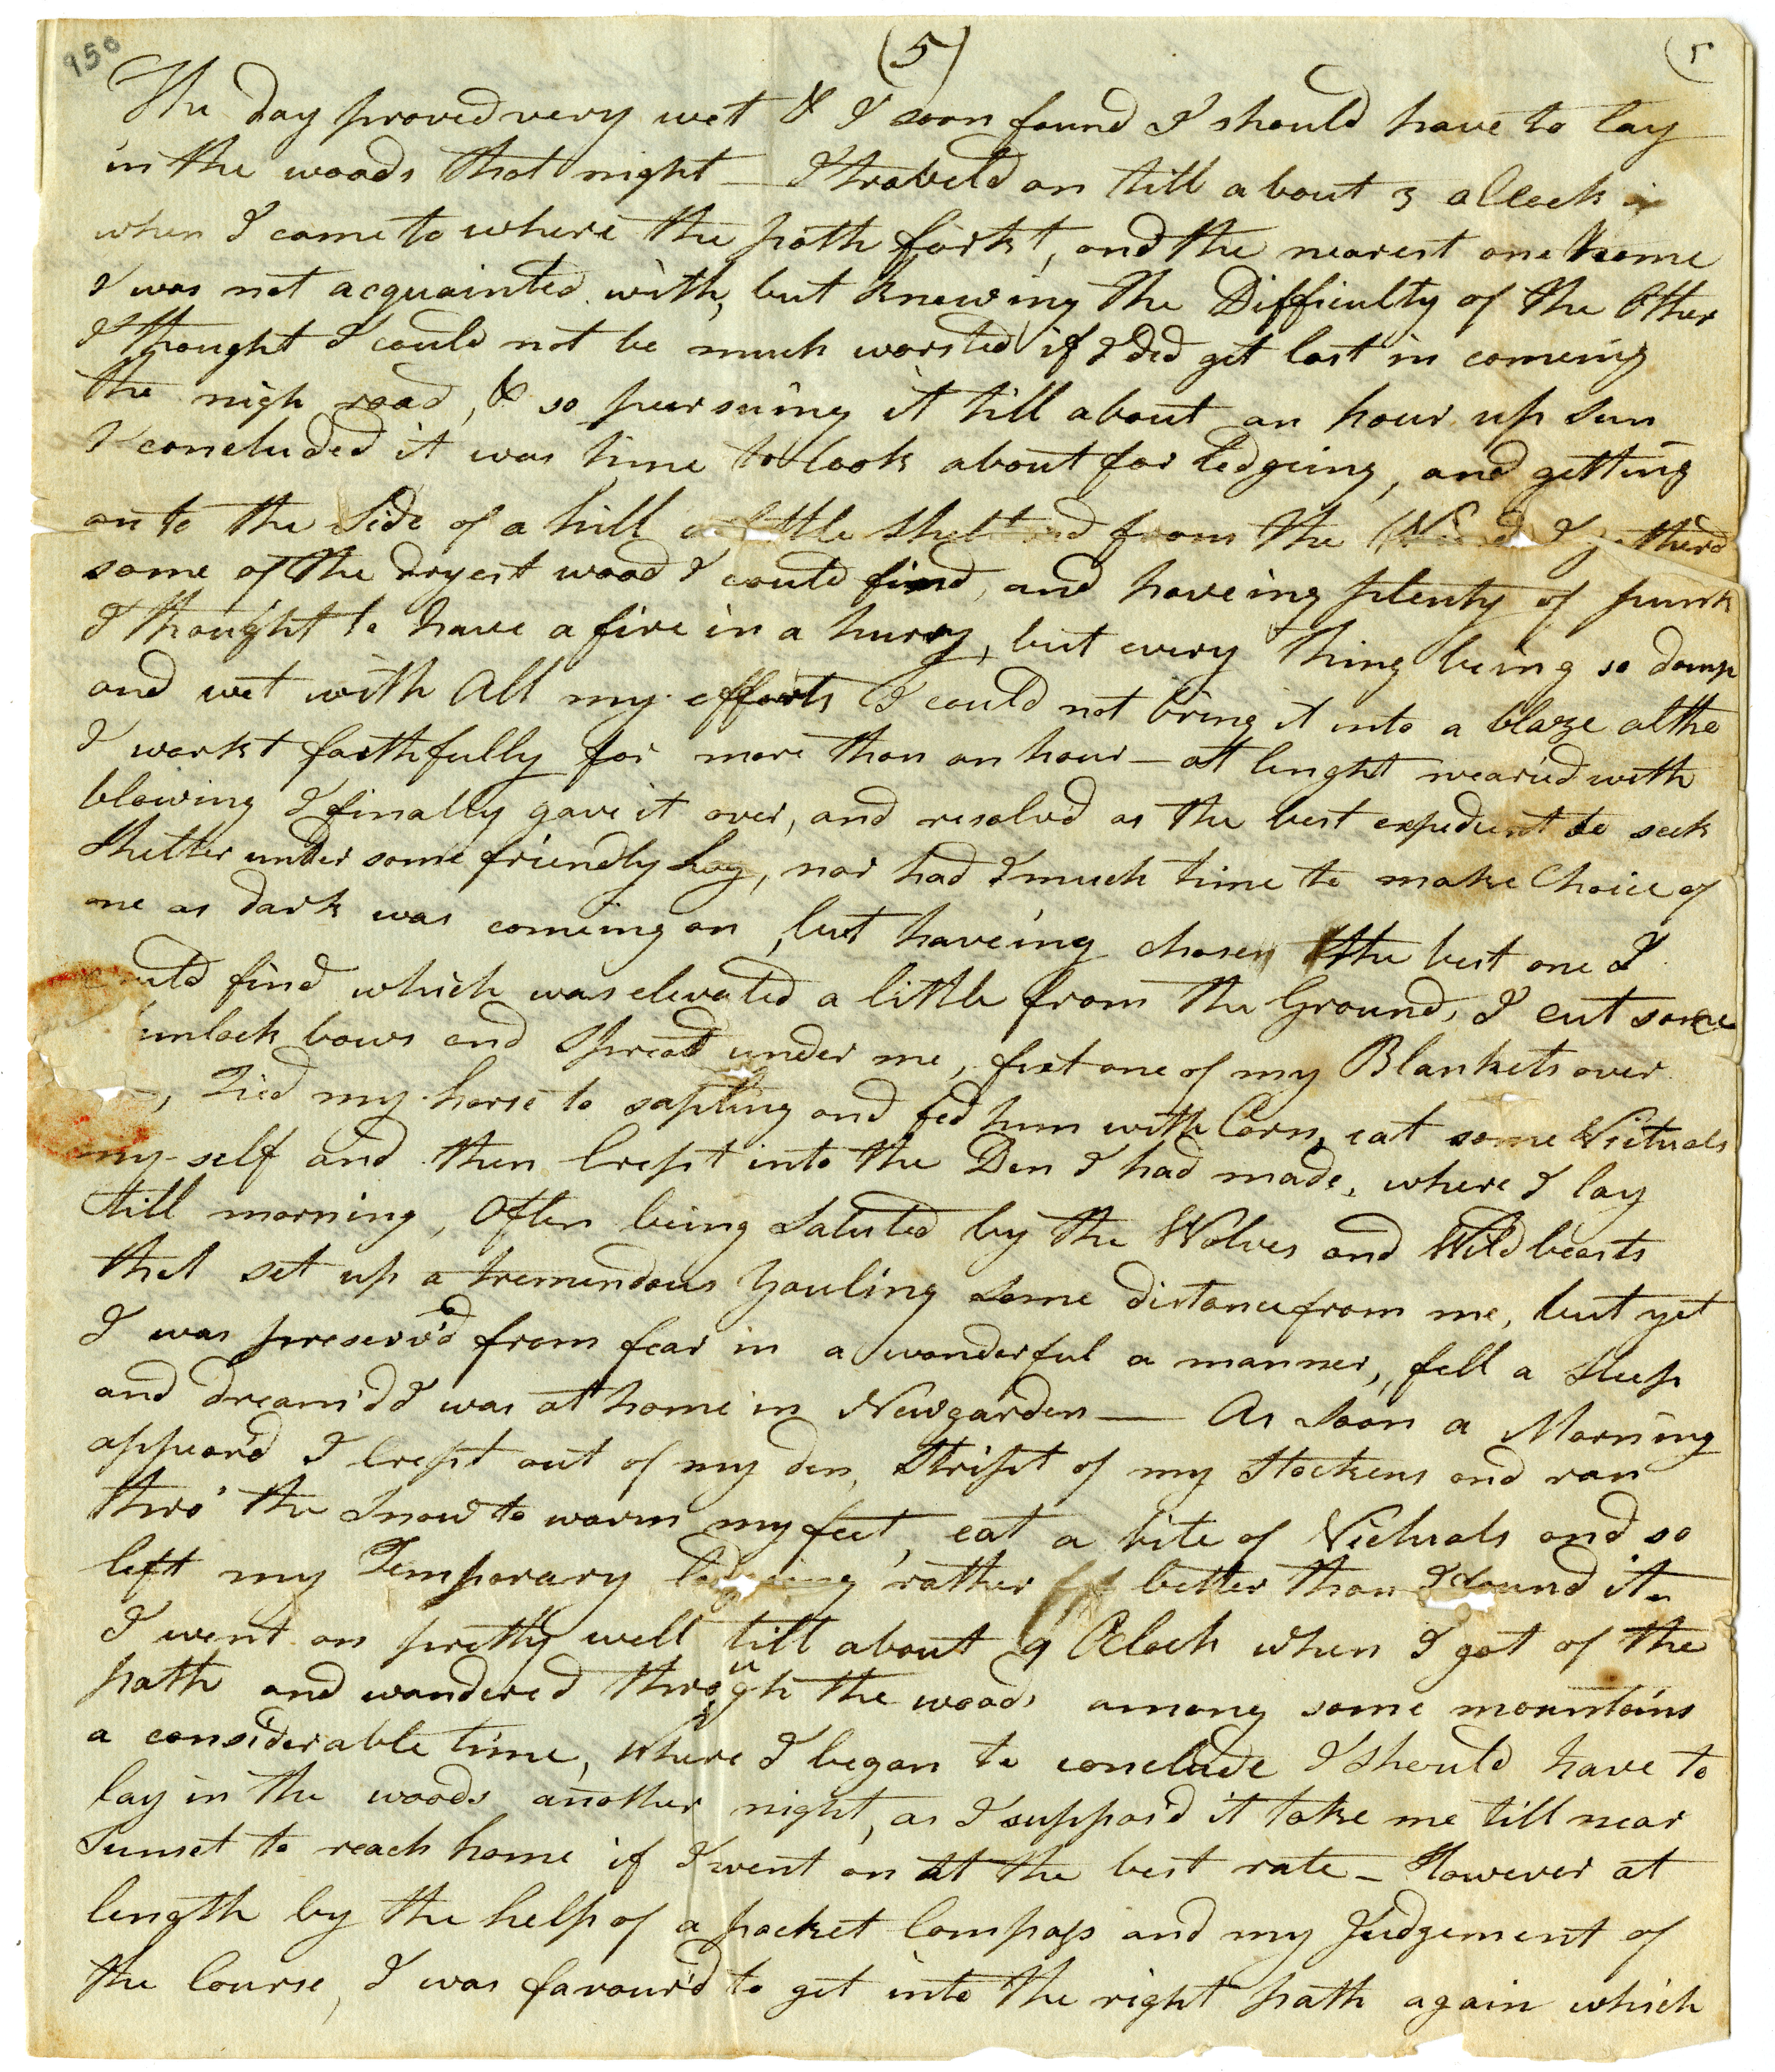 950
(5)
5
The day proved very wet & I soon found I should have to lay
in the woods that night — I traveld on till about 3 oClock
when I come to where the path forkt, and the nearest one home
I was not acquainted with, but knowing the Difficulty of the Other
I thought I could not be much worsted if I did get lost in comeing
the nigh road, & so pursuing it till about an hour up sun
I concluded it was time to look about for Lodgeing, and getting
on to the Side of a hill a little from the Wind I gatherd
some of the dryest wood I could find, and haveing plenty of punk
I thought to have a fire in a hurry, but every thing being so damp
and wet with All my efforts I could not bring it into a blaze altho
I workt faithfully for more than an hour — at lenght wearied with
blowing I finally gave it over, and resolvd as the best expedient to seek
Shelter under some friendly Log, nor had I much time to make Choice of
one as dark was comeing on, but haveing chosen the best one I
could find which was elevated a little from the Ground, I cut some
bows and Spread under me, fixt one of my Blankets over
, Tied my horse to sapling and fed him with Corn, eat some Victuals
my-self and then Crept into the Den I had made, where I lay
till morning, Often being Saluted by the Wolves and Wild beasts
that set up a tremendous Youling some distance from me, but yet
I was preserv'd from fear in a wonderful a manner, fell a Sleep
and dream'd I was at home in Newgarden — As soon a Morning
appear'd I Crept out of my den, Stript of my Stockens and ran
thro' the Snow to warm my feet, eat a bite of Victuals and so
left my Temporary lodgeing rather better than I found it —
I went on pretty well till about 9 Oclock when I got of the
path and wandered through the woods among some mountains
a considerable time, where I began to conclude I should have to
lay in the woods another night, as I suppos'd it take me till near
Sunset to reach home if I went on at the best rate — However at
length by the help of a pocket Compass and my Judgement of
the Course, I was favour'd to get into the right path again which